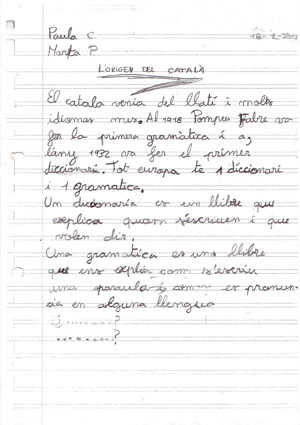 Paula C. 18-2-2013
Marta P.
L'ORIGEN DEL CATALÀ
El catala venia del llatí i molts
idiomas mes. Al 1918 Pompeu Fabre va
fer la primera gramàtica i a
l'any 1932 va fer el primer
diccionari. Tot europa te 1 diccionari
i 1 gramatica.
Un diccionaria es un llibre que
explica quam s'escriuen i que
volen dir.
Una gramatica es una llibre
que ens explica com s'escriu
una paraula i com es pronun-
sia en alguna llengua
¿..........?
..........?